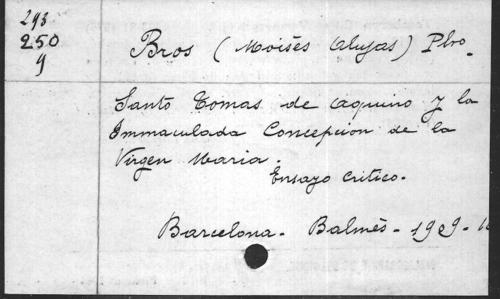 293
250
9
Bros (Moisés Alujas) Pbro.
Santo Tomas de Aquino y la
Inmaculada Concepcion de la
Virgen Maria.
Ensayo critico.
Barcelona - Balmes - 1909 -